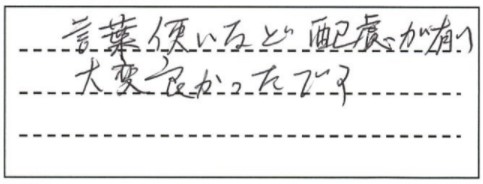 言葉使いなど配慮が有り
大変良かったです